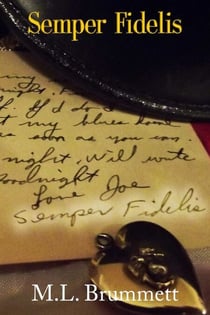 Semper Fidelis
my
night,
. If I'd
my blues home
as soon as you can.
night, Will write
Goodnight
Love Joe
Semper Fidelis
M.L. Brummett